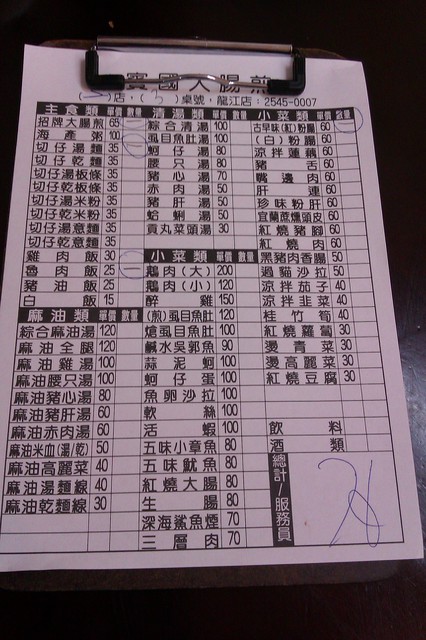 賓國大腸煎
(二)店,( )桌號,龍江店:2545-0007
主食類 單價 數量
招牌大腸煎 65
海產粥 100
切仔湯麵 35
切仔乾麵 35
切仔湯板條 35
切仔乾板條 35
切仔湯米粉 35
切仔乾米粉 35
切仔湯意麵 35
切仔乾意麵 35
雞肉飯 30
魯肉飯 25
豬油飯 25
白飯 15
麻油類 單價 數量
綜合麻油湯 120
麻油全腿 120
麻油雞湯 100
麻油腰只湯 100
麻油豬心湯 80
麻油豬肝湯 60
麻油赤肉湯 60
麻油米血(湯/乾) 50
麻油高麗菜 40
麻油湯麵線 40
麻油乾麵線 30
清湯類 單價 數量
綜合清湯 100
虱目魚肚湯 100
蚵仔湯 80
腰只湯 80
豬心湯 70
赤肉湯 50
豬肝湯 50
蛤蜊湯 50
貢丸菜頭湯 30
小菜類 單價 數量
鵝肉(大) 200
鵝肉(小) 120
醉雞 150
(煎)虱目魚肚 120
熗虱目魚肚 100
鹹水吳郭魚 90
蒜泥蚵 100
蚵仔蛋 100
魚卵沙拉 100
軟絲 100
活蝦 100
五味小章魚 80
五味魷魚 80
紅燒大腸 80
生腸 80
深海鯊魚煙 70
三層肉 70
小菜類 單價 數量
古早味(紅)粉腸 60
(白)粉腸 60
涼拌蓮藕 60
豬舌 60
嘴邊肉 60
肝連 60
珍味粉肝 60
宜蘭蔗燻頭皮 60
紅燒豬腳 60
紅燒肉 60
黑豬肉香腸 50
過貓沙拉 50
涼拌茄子 40
涼拌韭菜 40
桂竹筍 40
紅燒蘿蔔 30
燙青菜 30
燙高麗菜 30
紅燒豆腐 30
飲料
酒類
總計/服務員